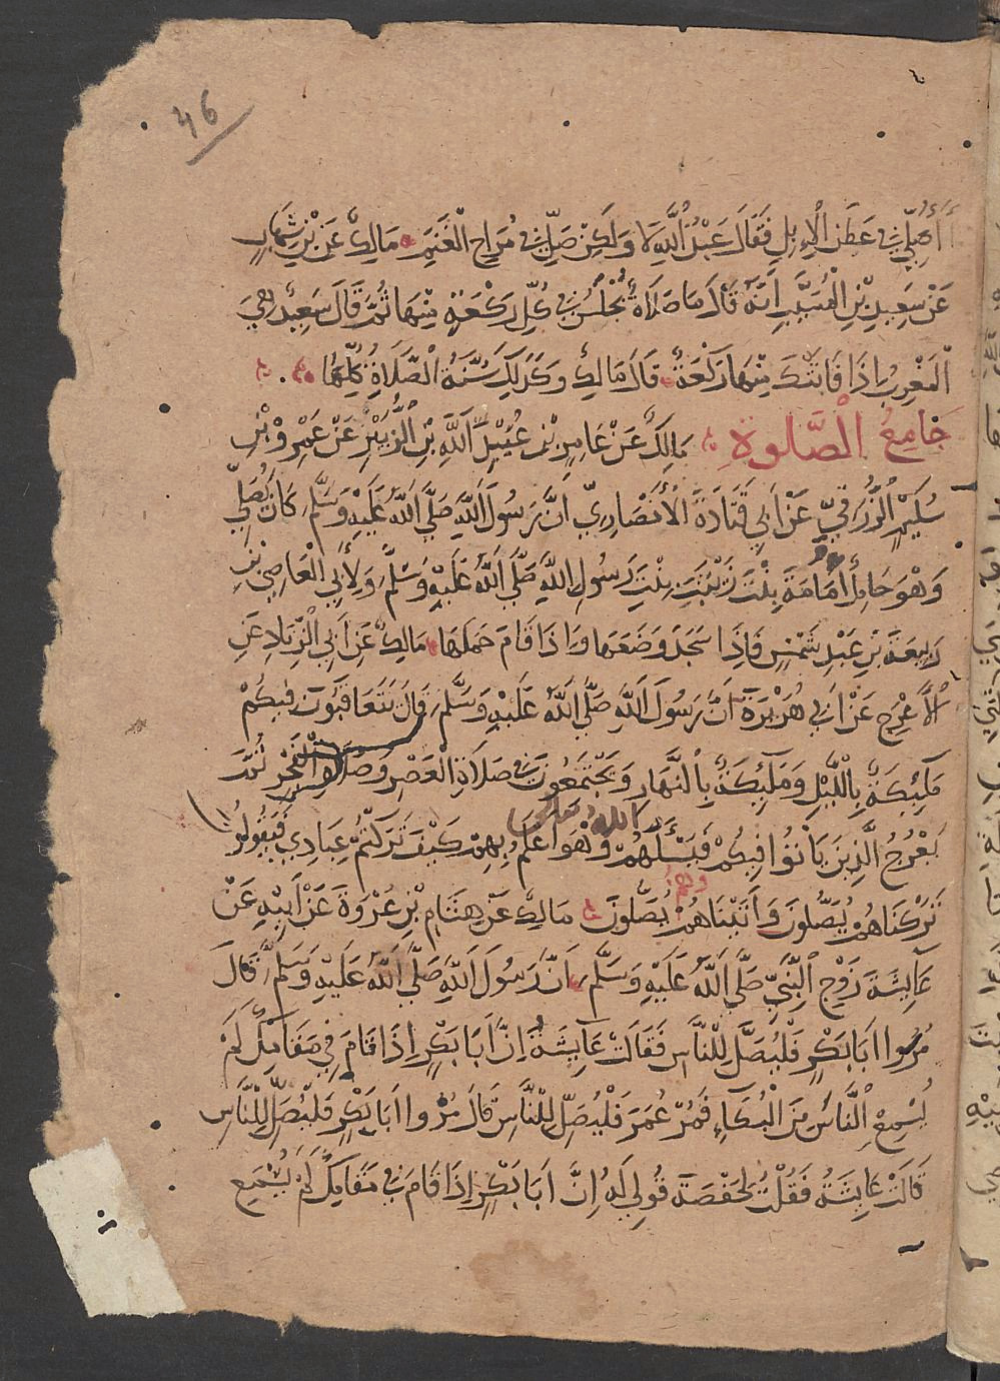 46
أَأُصَلِّي فِي عَطَنِ الْإِبِلِ فَقَالَ عَبْدُ اللَّهِ لَا وَلَكِنْ صَلِّ فِي مُرَاحِ الْغَنَمِ مَالِكٌ عَنِ بْنِ شِهَابٍ
عَنْ سَعِيدِ بْنِ الْمُسَيَّبِ أَنَّهُ قَالَ مَا صَلَاةٌ يُجْلَسُ فِي كُلِّ رَكْعَةٍ مِنْهَا ثُمَّ قَالَ سَعِيدٌ هِيَ
الْمَغْرِبُ إِذَا فَاتَتْكَ مِنْهَا رَكْعَةٌ قَالَ مَالِكٌ وَكَذَلِكَ سُنَّةُ الصَّلَاةِ كُلِّهَا
جَامِعُ الصَّلوةِ مَالِكٌ عَنْ عَامِرِ بْنِ عَبْدِ اللَّهِ بْنِ الزُّبَيْرِ عَنْ عَمْرِو بْنِ
سُلَيْمٍ الزُّرَقِيِّ عَنْ أَبِي قَتَادَةَ الْأَنْصَارِيِّ أَنَّ رَسُولَ اللَّهِ صَلَّى اللَّهُ عَلَيْهِ وَسَلَّمَ كَانَ يُصَلِّي
وَهْوَ حَامِلٌ أُمَامَةَ بِنْتَ زَيْنَبَ بِنْتِ رَسُولِ اللَّهِ صَلَّى اللَّهُ عَلَيْهِ وَسَلَّمَ وَلِأَبِي الْعَاصِي بْنِ
رَبِيعَةَ بْنِ عَبْدِ شَمْسٍ فَإِذَا سَجَدَ وَضَعَهَا وَإِذَا قَامَ حَمَلَهَا مَالِكٌ عَنْ أَبِي الزِّنَادِ عَنِ
الْأَعْرَجِ عَنْ أَبِي هُرَيْرَةَ أَنَّ رَسُولَ اللَّهِ صَلَّى اللَّهُ عَلَيْهِ وَسَلَّمَ قَالَ يَتَعَاقَبُونَ فِيكُمْ
مَلَئِكَةٌ بِاللَّيْلِ وَمَلَئِكَةٌ بِالنَّهَارِ وَيَجْتَمِعُونَ فِي صَلَاةِ الْعَصْرِ وَصَلَاةِ الْفَجْرِ ثُمَّ
يَعْرُجُ الَّذِينَ بَاتُوا فِيكُمْ فَيَسْئَلُهُمْ وَهْوَ أَعْلَمُ بِهِمْ كَيْفَ تَرَكْتُمْ عِبَادِي فَيَقُولُوا
تَرَكْنَاهُمْ يُصَلُّونَ وَأَتَيْنَاهُمْ وهم يُصَلُّونَ مَالِكٌ عَنْ هِشَامِ بْنِ عُرْوَةَ عَنْ أَبِيهِ عَنْ
عَايِشَةَ زَوْجِ النَّبِيِّ صَلَّى اللَّهُ عَلَيْهِ وَسَلَّمَ أَنَّ رَسُولَ اللَّهِ صَلَّى اللَّهُ عَلَيْهِ وَسَلَّمَ قَالَ
مُرُوا أَبَا بَكْرٍ فَلْيُصَلِّ لِلنَّاسِ فَقَالَتْ عَايِشَةُ إِنَّ أَبَا بَكْرٍ إِذَا قَامَ فِي مَقَامِكَ لَمْ
يُسْمِعِ النَّاسَ مِنَ الْبُكَاءِ فَمُرْ عُمَرَ فَلْيُصَلِّ لِلنَّاسِ قَالَ مُرُوا أَبَا بَكْرٍ فَلْيُصَلِّ لِلنَّاسِ
قَالَتْ عَايِشَةُ فَقُلْتُ لِحَفْصَةَ قُولِي لَهُ إِنَّ أَبَا بَكْرٍ إِذَا قَامَ فِي مَقَامِكَ لَمْ يُسْمِعِ